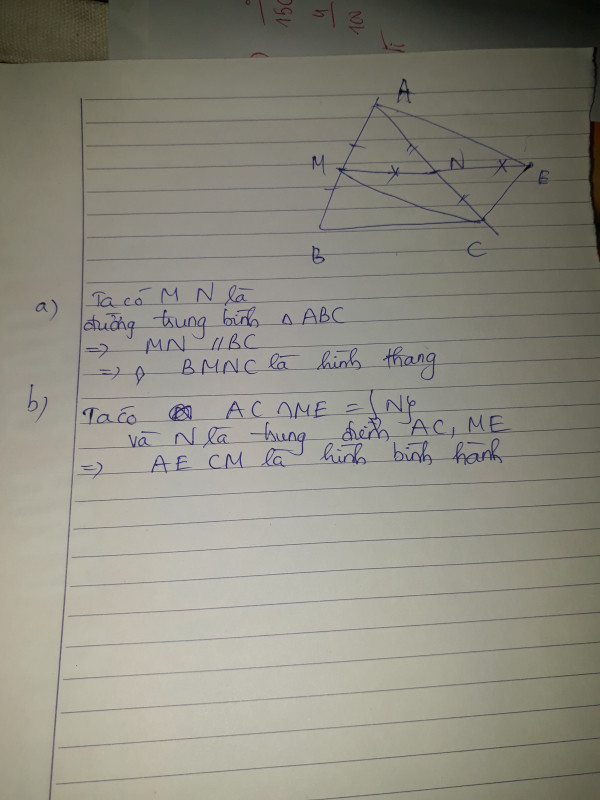 150
4
100
A
M
N
E
B
C
a) Ta có M N là
đường trung bình △ ABC
=> MN // BC
=> ◊ BMNC là hình thang
b) Ta có AC ∩ ME = {N}
và N là trung điểm AC, ME
=> AE CM là hình bình hành